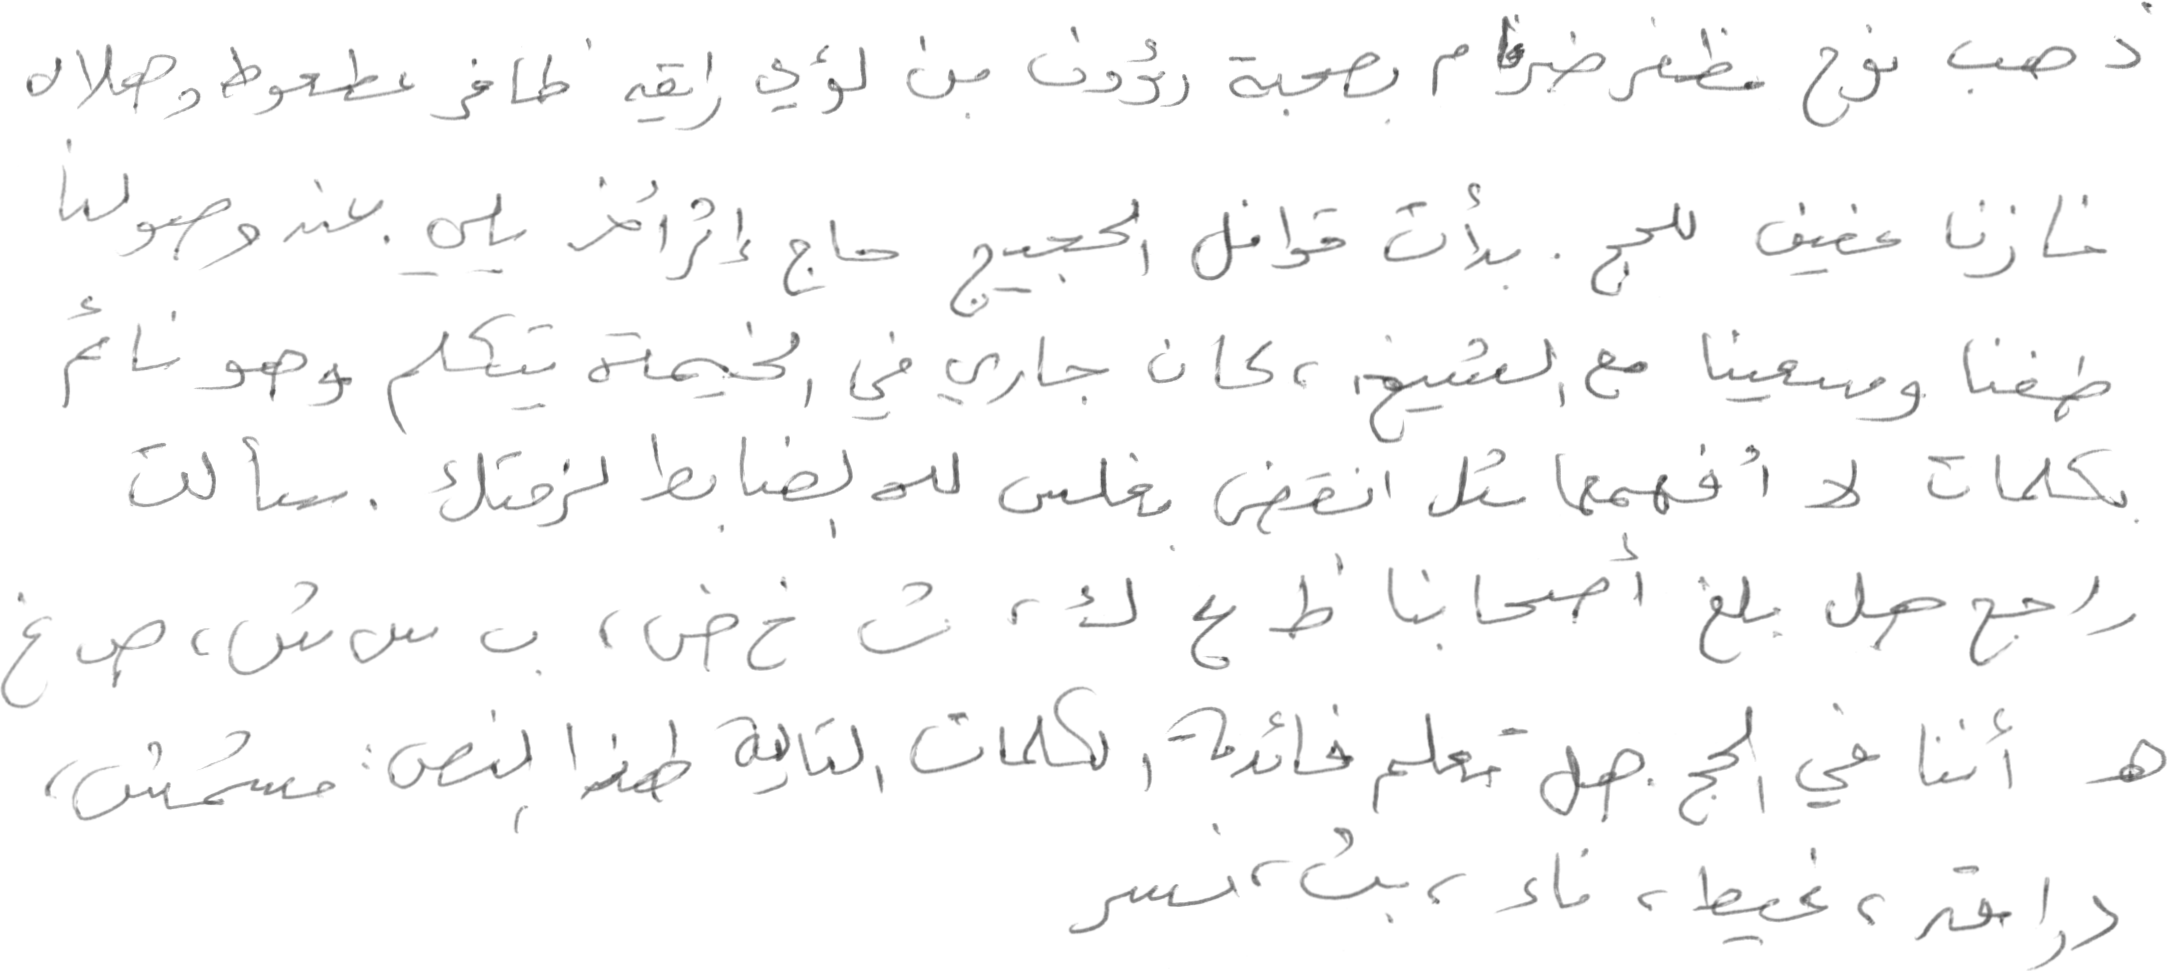 ذهب نوح مظفر ضرغام بصحبة رؤوف بن لؤي رايقه ظافر عطعوط وهلاله
خازنا عفيف للحج . بدأت قوافل الحجيج حاج إثر آخر يلبي . عند وصولنا
طفنا وسعينا مع الشيخ ، كان جاري في الخيمة يتكلم وهو نائم
بكلمات لا أفهمها مثل انقض بغلس لله لضابط لزقتك . سألت
راجح هل بلغ أصحابنا ظ ع ك ، ث خ ض ، ب س ش ، ص غ
هـ أننا في الحج . هل تعلم فائدة الكلمات التالية لهذا النص : مسمش ،
درامقه ، غيط ، ناء ، بث ، نسر